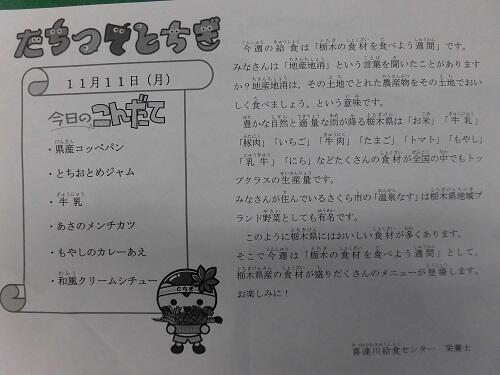 たちつてとちぎ
11月11日（月）
今日のこんだて
・県産コッペパン
・とちおとめジャム
・牛乳
・あさのメンチカツ
・もやしのカレーあえ
・和風クリームシチュー
とちぎ
今週の給食は「栃木の食材を食べよう週間」です。
みなさんは「地産地消」という言葉を聞いたことがあります
か？地産地消は、その土地でとれた農産物をその土地でおい
しく食べましょう。という意味です。
豊かな自然と適量な雨が降る栃木県は「お米」「牛乳」
「豚肉」「いちご」「牛肉」「たまご」「トマト」「もやし」
「乳牛」「にら」などたくさんの食材が全国の中でもトッ
プクラスの生産量です。
みなさんが住んでいるさくら市の「温泉なす」は栃木県地域ブ
ランド野菜としても有名です。
このように栃木県にはおいしい食材が多くあります。
そこで今週は「栃木の食材を食べよう週間」として、
栃木県産の食材が盛りだくさんのメニューが登場します。
お楽しみに！
喜連川給食センター　栄養士